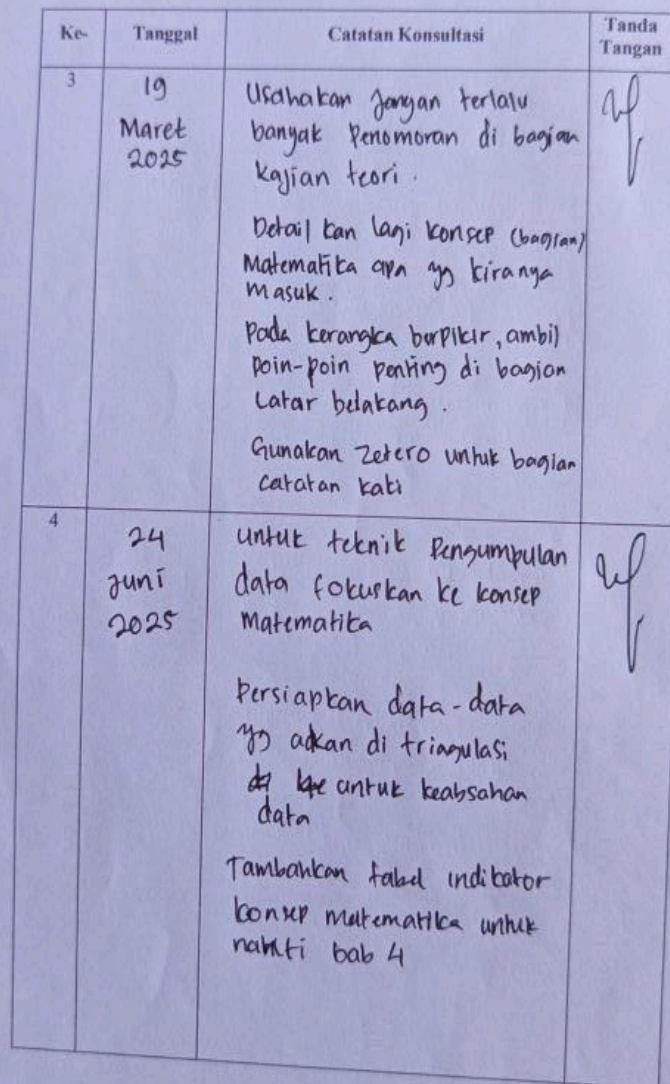 Ke-
Tanggal
Catatan Konsultasi
Tanda
Tangan
3
19
Maret
2025
Usahakan jangan terlalu
banyak Penomoran di bagian
Kajian teori.
Detail kan lagi konsep (bagian)
Matematika apa yg kiranya
masuk.
Pada kerangka berpikir, ambil
poin-poin penting di bagian
Latar belakang.
Gunakan Zetero untuk bagian
catatan kaki
4
24
Juni
2025
untuk teknik Pengumpulan
data fokuskan ke konsep
Matematika
Persiapkan data-data
yg adkan di triagulasi
untuk keabsahan
data
Tambahkan tabel indikator
konsep matematika untuk
nahti bab 4